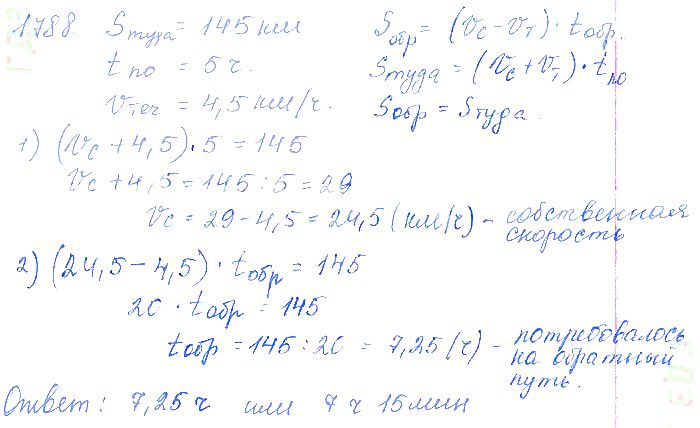 1788. Sтуда = 145 км
t по = 5 ч.
Vтеч = 4,5 км/ч.
Sобр = (Vс – Vт) · tобр.
Sтуда = (Vс + Vт) · tпо
Sобр = Sтуда.
1) (Vс + 4,5) · 5 = 145
Vс + 4,5 = 145 : 5 = 29
Vс = 29 – 4,5 = 24,5 (км/ч) – собственная
скорость
2) (24,5 – 4,5) · tобр = 145
20 · tобр = 145
tобр = 145 : 20 = 7,25 (ч) – потребовалось
на обратный
путь.
Ответ: 7,25 ч или 7 ч 15 мин